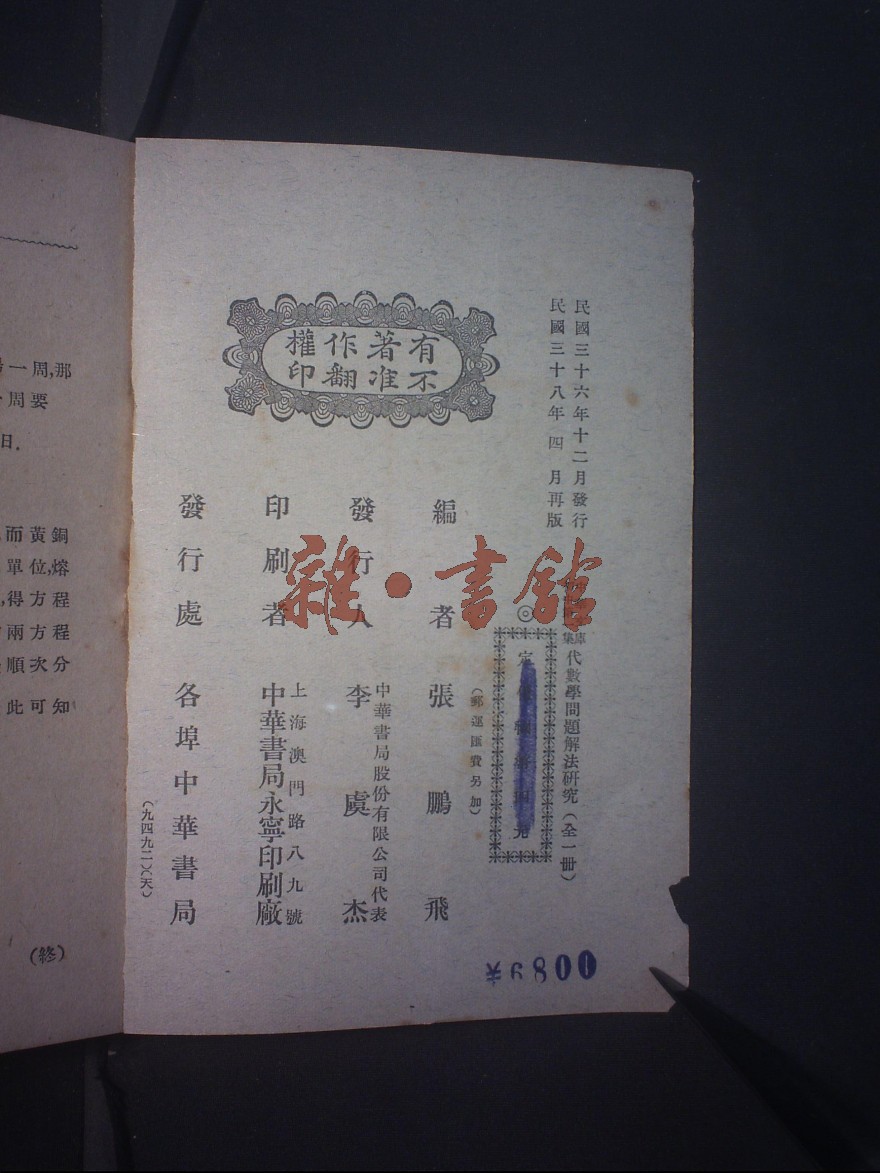 民國三十六年十二月發行
民國三十八年四月再版
代數學問題解法研究(全一冊)
◎
定
(郵運匯費另加)
有不著准作翻權印
編者 張鵬飛
發行人 中華書局股份有限公司代表 李虞杰
印刷者 上海澳門路八九號 中華書局永寧印刷廠
發行處 各埠中華書局
(九四九二)(天)
0089
雜·書館
一周,那
周要
日.
而黃銅
單位,熔
得方程
兩方程
順次分
此可知
(終)